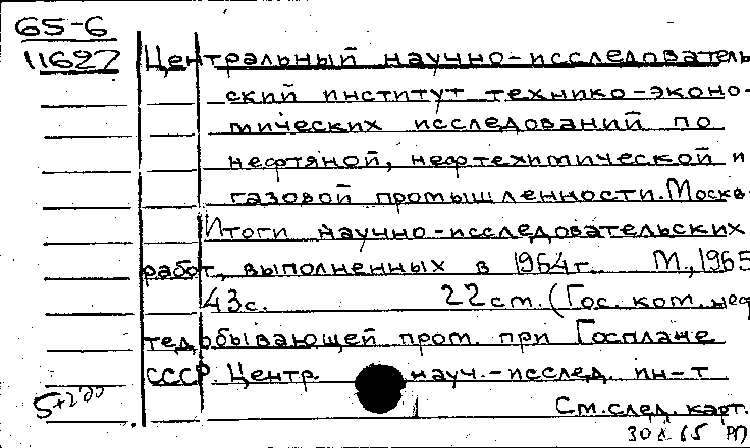 65-6
11627 Центральный научно-исследователь
ский институт технико-эконо-
мических исследований по
нефтяной, нефтехимической и
газовой промышленности. Москва
Итоги научно-исследовательских
работ, выполненных в 1964г. М., 1965
43с. 22см. (Гос. ком. неф
тедобывающей пром. при Госплане
СССР. Центр. науч.-исслед. ин-т
См. след. карт.